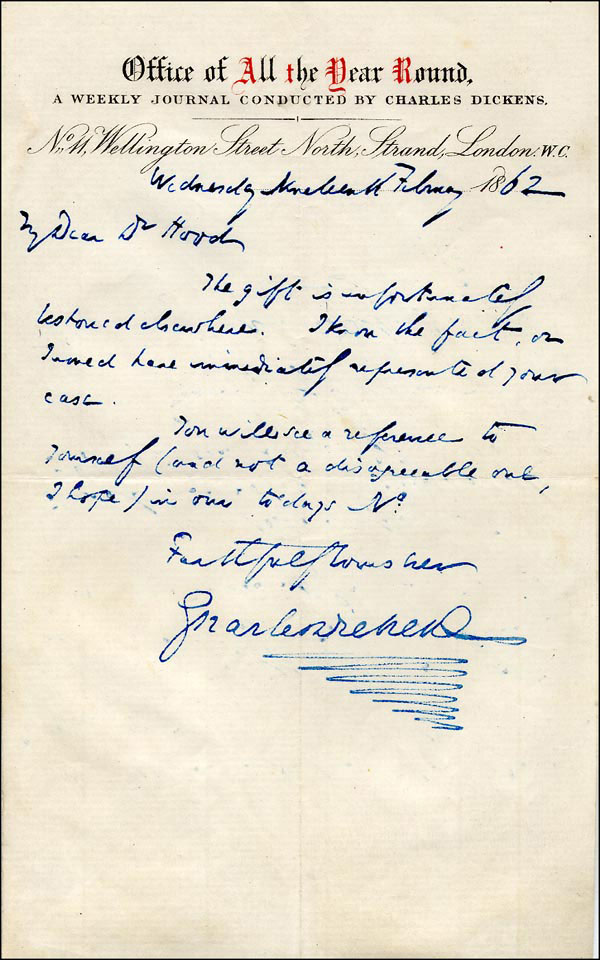 Office of All the Year Round,
A WEEKLY JOURNAL CONDUCTED BY CHARLES DICKENS.
No. 11, Wellington Street North, Strand, London. W.C.
Wednesday Nineteenth February 1862
My Dear Dr Hood
The gift is unfortunately
bestowed elsewhere. I know the fact, or
I would have immediately represented your
case.
You will see a reference to
Yourself (and not a disagreeable one,
I hope) in our todays No.
Faithfully Yours ever
Charles Dickens